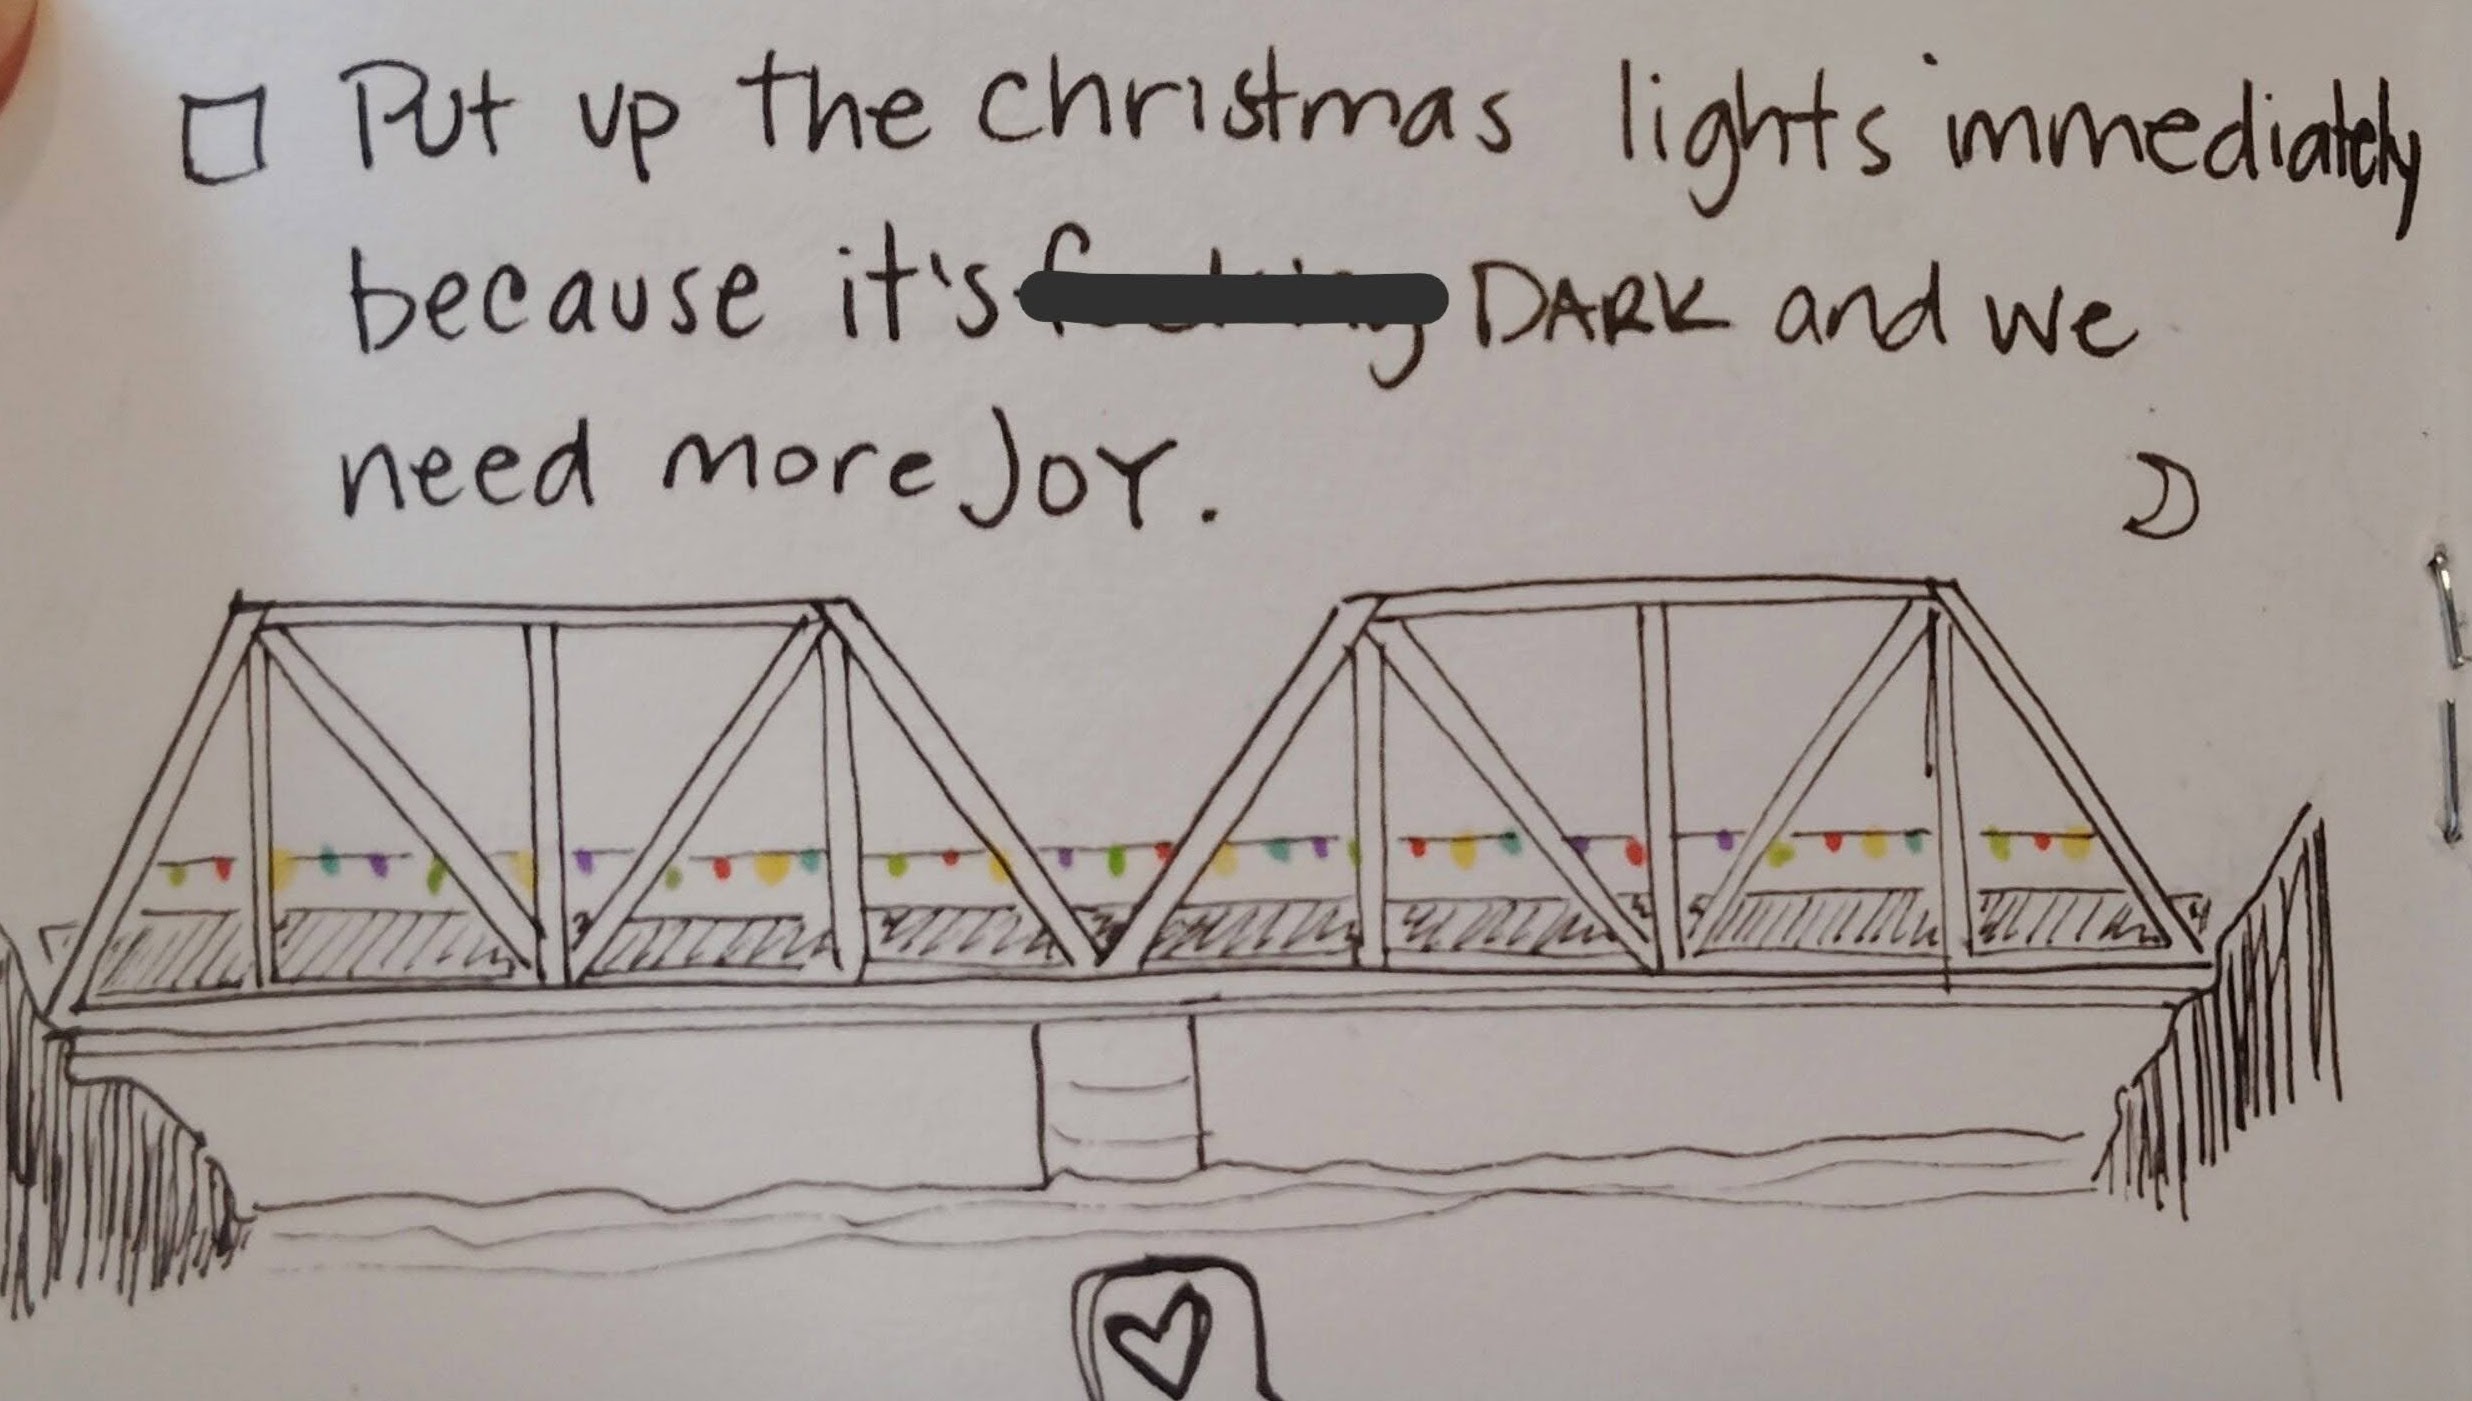 Put up the christmas lights immediately
because it's DARK and we
need more JOY.